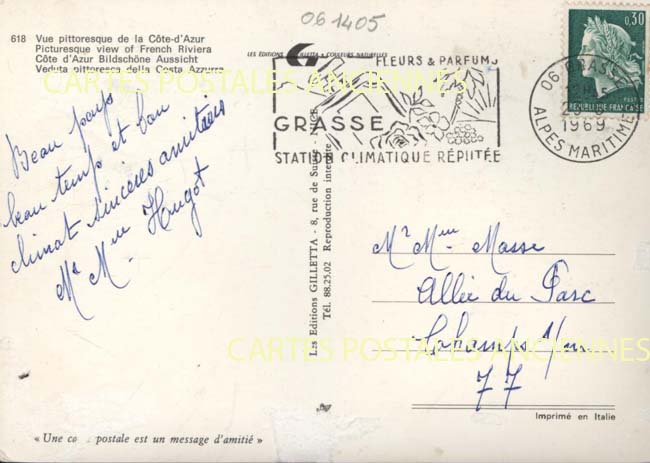 061405
618 Vue pittoresque de la Côte-d'Azur
Picturesque view of French Riviera
Côte d'Azur Bildschöne Aussicht
Veduta pittoresca della Costa Azzurra
LES EDITIONS GILLETTA - COULEURS NATURELLES
FLEURS & PARFUMS
GRASSE
STATION CLIMATIQUE RÉPUTÉE
06 GRASSE
1969
ALPES MARITIMES
0,30
REPUBLIQUE FRANCAISE
CARTES POSTALES ANCIENNES
Beau pays
beau temps et bon
climat sincères amitiés
Mr Mme Hugot
Les Editions GILLETTA - 8, rue de Suisse - NICE
Tél. 88.25.02 Reproduction interdite
Mr Mme Masse
Allée du Parc
77
CARTES POSTALES ANCIENNES
Imprimé en Italie
« Une carte postale est un message d'amitié »